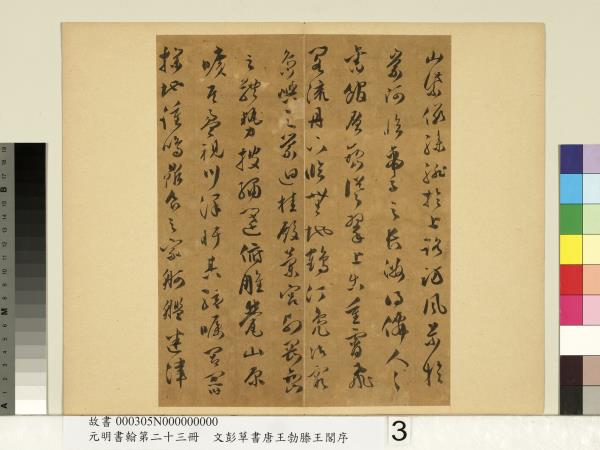 山紫儼驂騑於上路訪風景於
崇阿臨帝子之長洲得僊人之
舊館層巒聳翠上出重霄飛
閣流丹下臨無地鶴汀鳧渚窮
島嶼之縈迴桂殿蘭宮列岡巒
之體勢披繡闥俯雕甍山原
曠其盈視川澤紆其駭矚閭閻
撲地鐘鳴鼎食之家舸艦迷津
故書 000305N000000000
元明書翰第二十三冊 文彭草書唐王勃滕王閣序
3